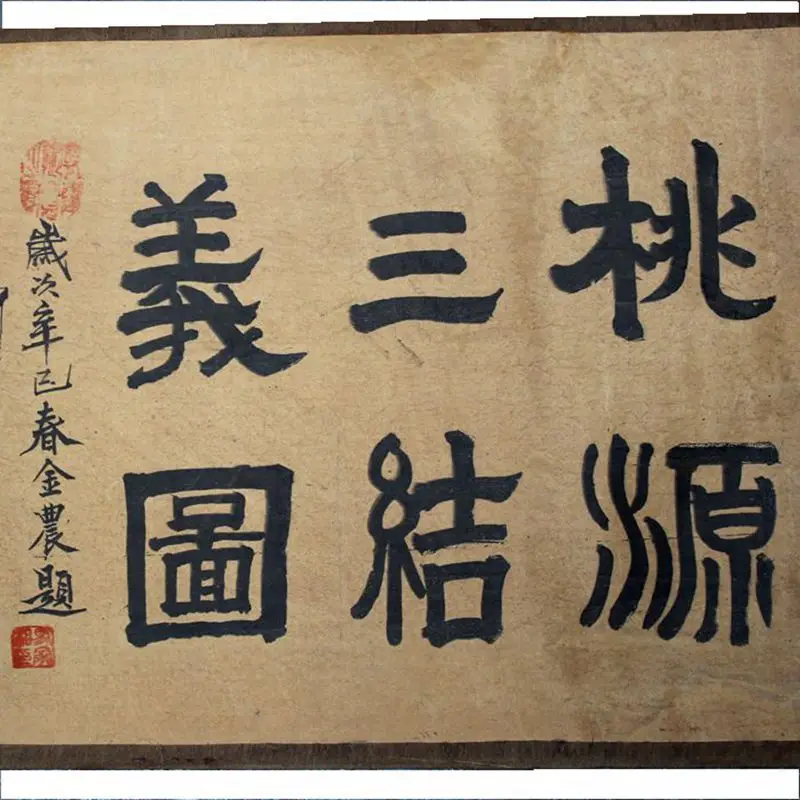 桃源
三结
義圖
歲次辛巳春金農題